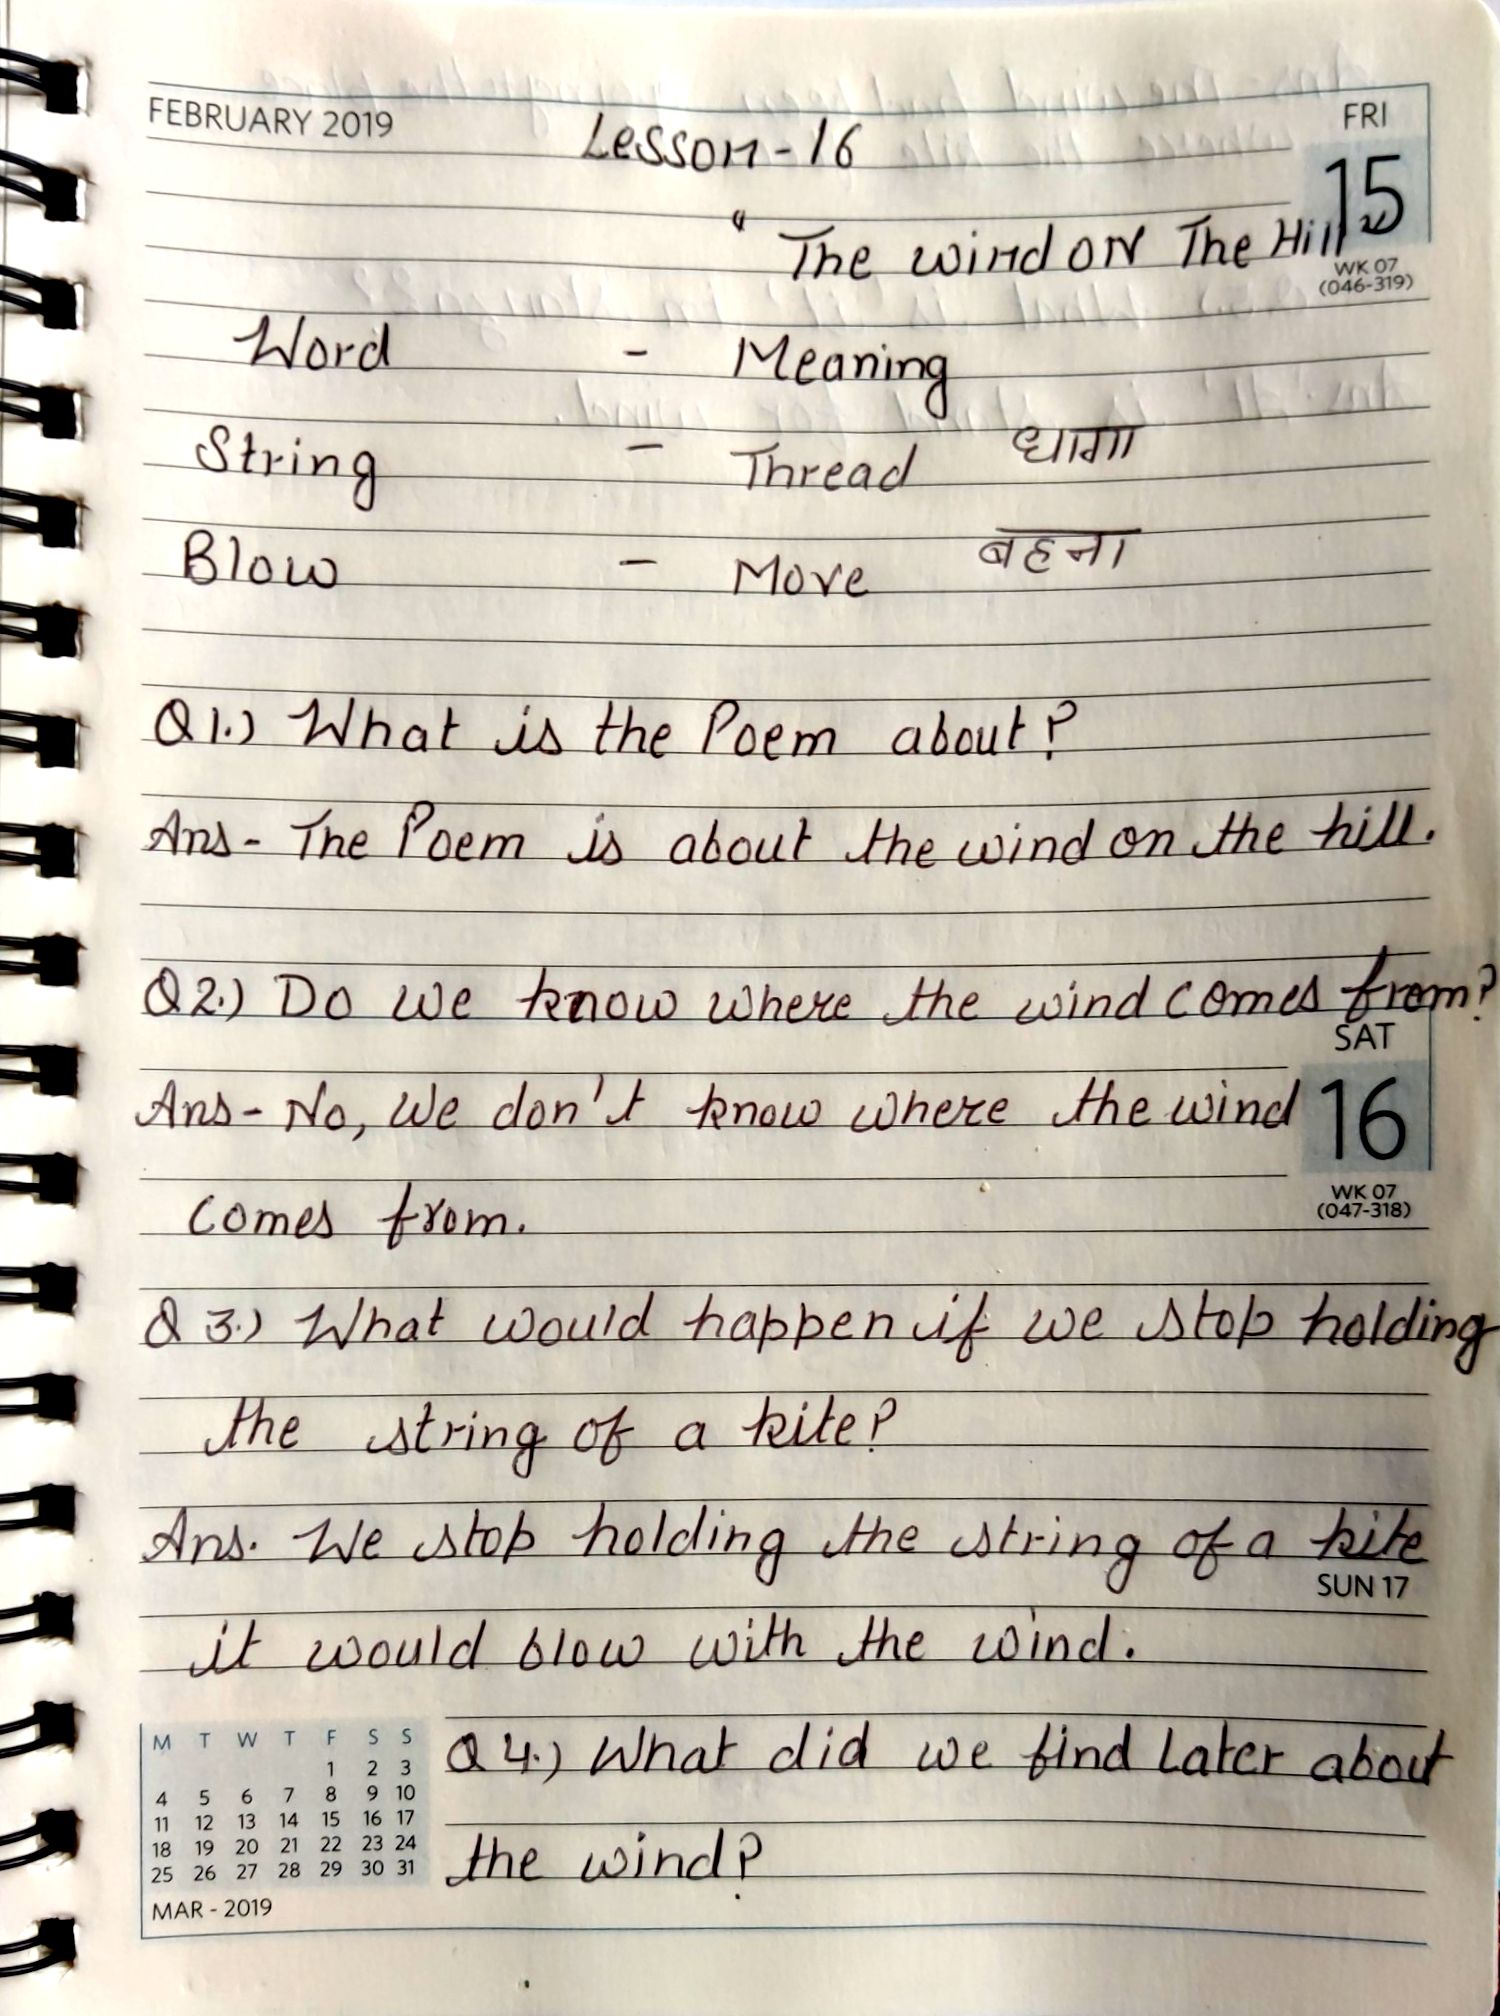 FEBRUARY 2019
FRI
Lesson-16
15
" The wind ON The Hill "
WK 07
(046-319)
Word - Meaning
String - Thread धागा
Blow - Move बहना
Q1.) What is the Poem about?
Ans- The Poem is about the wind on the hill.
Q2.) Do we know where the wind comes from?
SAT
Ans- No, We don't know where the wind
16
WK 07
(047-318)
comes from.
Q 3.) What would happen if we stop holding
the string of a kite?
Ans. We stop holding the string of a kite
SUN 17
it would blow with the wind.
Q 4.) What did we find later about
the wind?
M T W T F S S
1 2 3
4 5 6 7 8 9 10
11 12 13 14 15 16 17
18 19 20 21 22 23 24
25 26 27 28 29 30 31
MAR - 2019